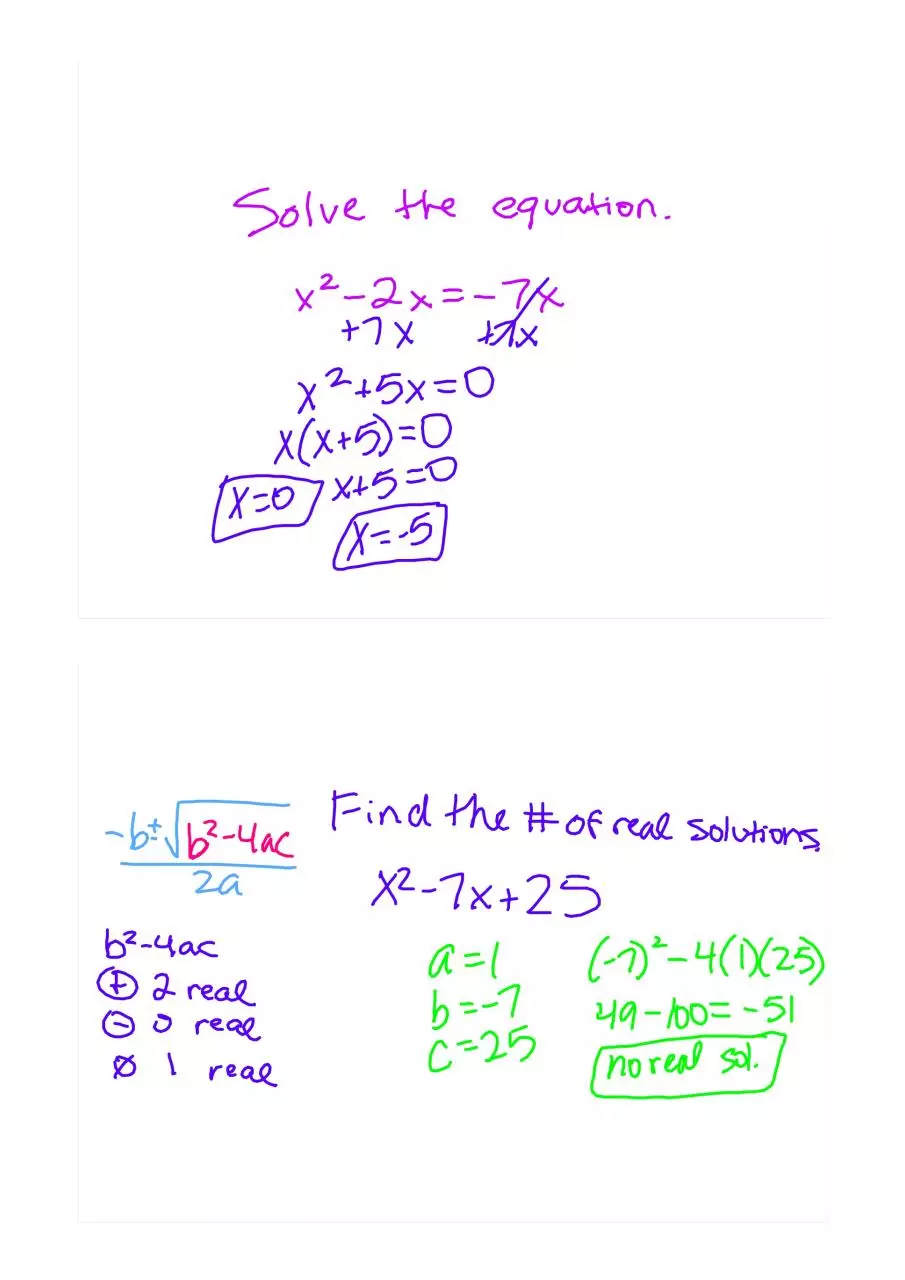 Solve the equation.
x² - 2x = -7x
+7x +7x
x² + 5x = 0
x(x+5) = 0
x=0 x+5=0
x=-5
Find the # of real solutions.
-b±√b²-4ac
2a
x² - 7x + 25
b²-4ac
⊕ 2 real
⊖ 0 real
Ø 1 real
a = 1
b = -7
c = 25
(-7)² - 4(1)(25)
49 - 100 = -51
no real sol.